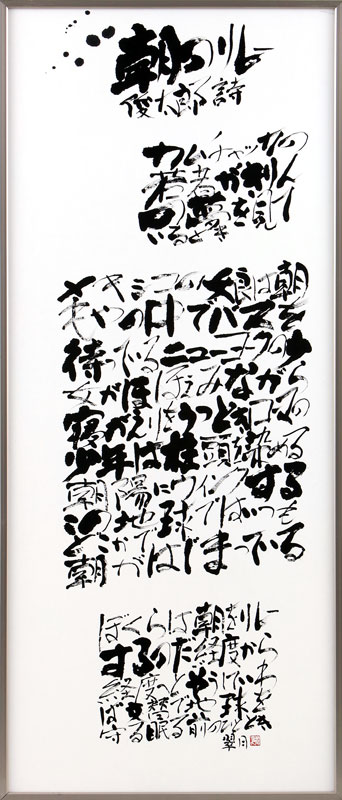 朝のリレー
俊太郎 詩
カムチャッカの
若者がきりん
の夢を見て
いるとき
メキシコの娘は朝
もやの中でバスを
待っているニューヨークの少
女がほほえみながら
寝がえりをうつときローマの
少年は柱頭を染める
朝陽にウインクする
この地球ではいつも
どこかで
朝がはじまっている
ぼくらは朝をリレー
するのだ経度から
経度へとそうしていわ
ば交替で地球を
守る眠る前のひととき
翠月